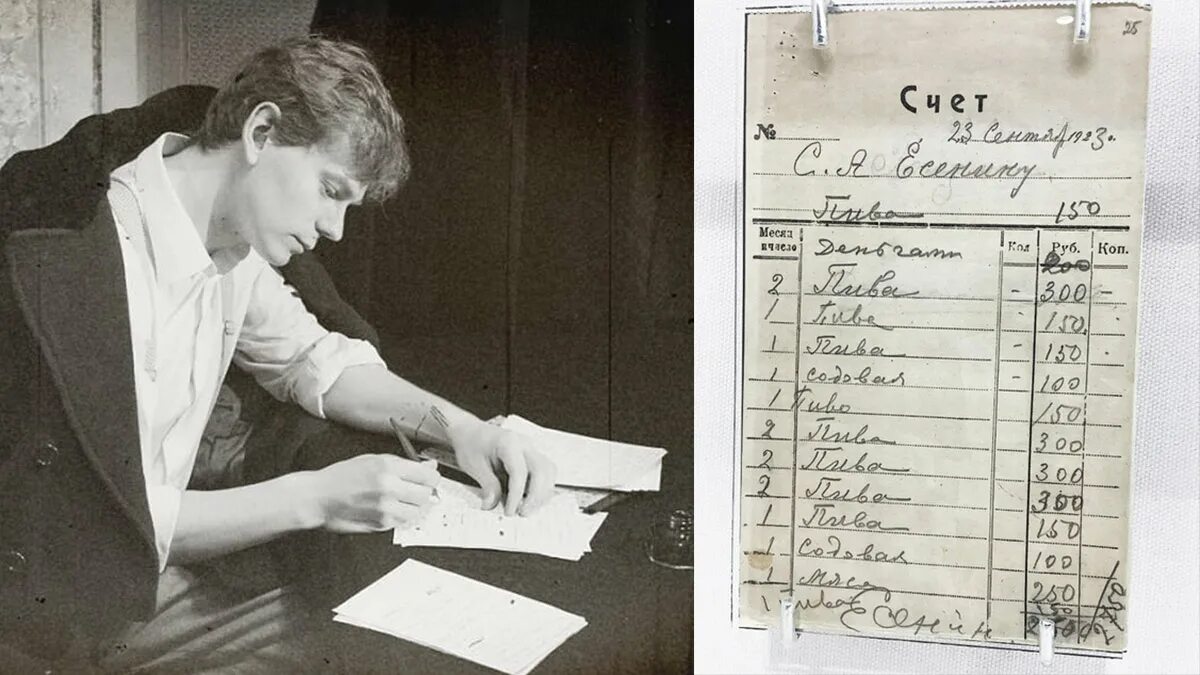 25
Счет
№ 23 Сентяб 1923 г.
С. А Есенину
Пива 150
Месяц и число Деньгами Кол Руб. Коп.
200
2 Пива - 300 -
1 Пива 150
1 Пива - 150
1 содовая - 100
1 Пиво 150
2 Пива 300
2 Пива 300
2 Пива 300
1 Пива 150
1 Содовая 100
1 Мясо 250
1 Пива 150
Есенин